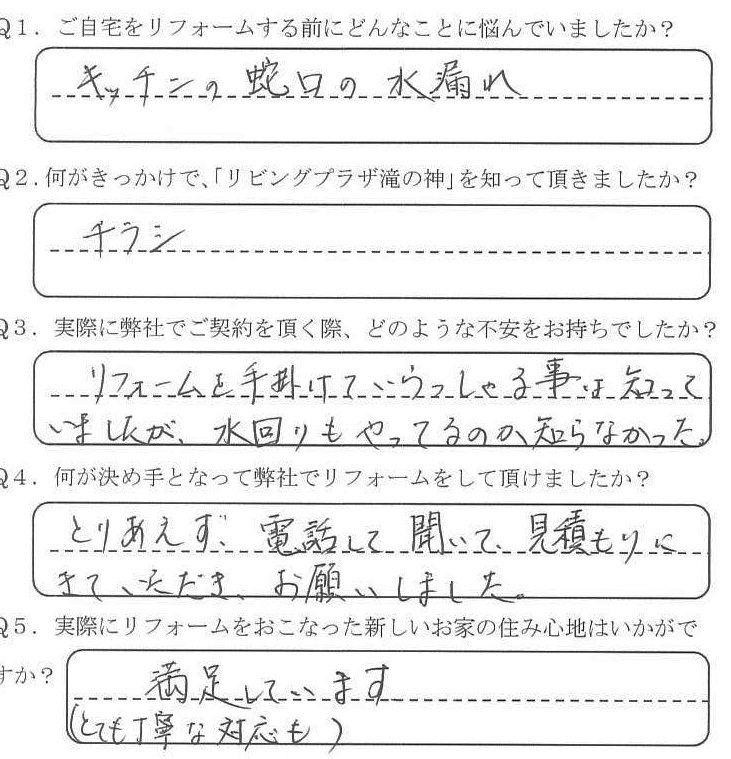 Q1．ご自宅をリフォームする前にどんなことに悩んでいましたか？
キッチンの蛇口の水漏れ
Q2．何がきっかけで、「リビングプラザ滝の神」を知って頂きましたか？
チラシ
Q3．実際に弊社でご契約を頂く際、どのような不安をお持ちでしたか？
リフォームを手掛けていらっしゃる事は知って
いましたが、水回りもやってるのか知らなかった。
Q4．何が決め手となって弊社でリフォームをして頂けましたか？
とりあえず、電話して聞いて、見積もりに
きていただき、お願いしました。
Q5．実際にリフォームをおこなった新しいお家の住み心地はいかがで
すか？
満足しています
（とても丁寧な対応も）